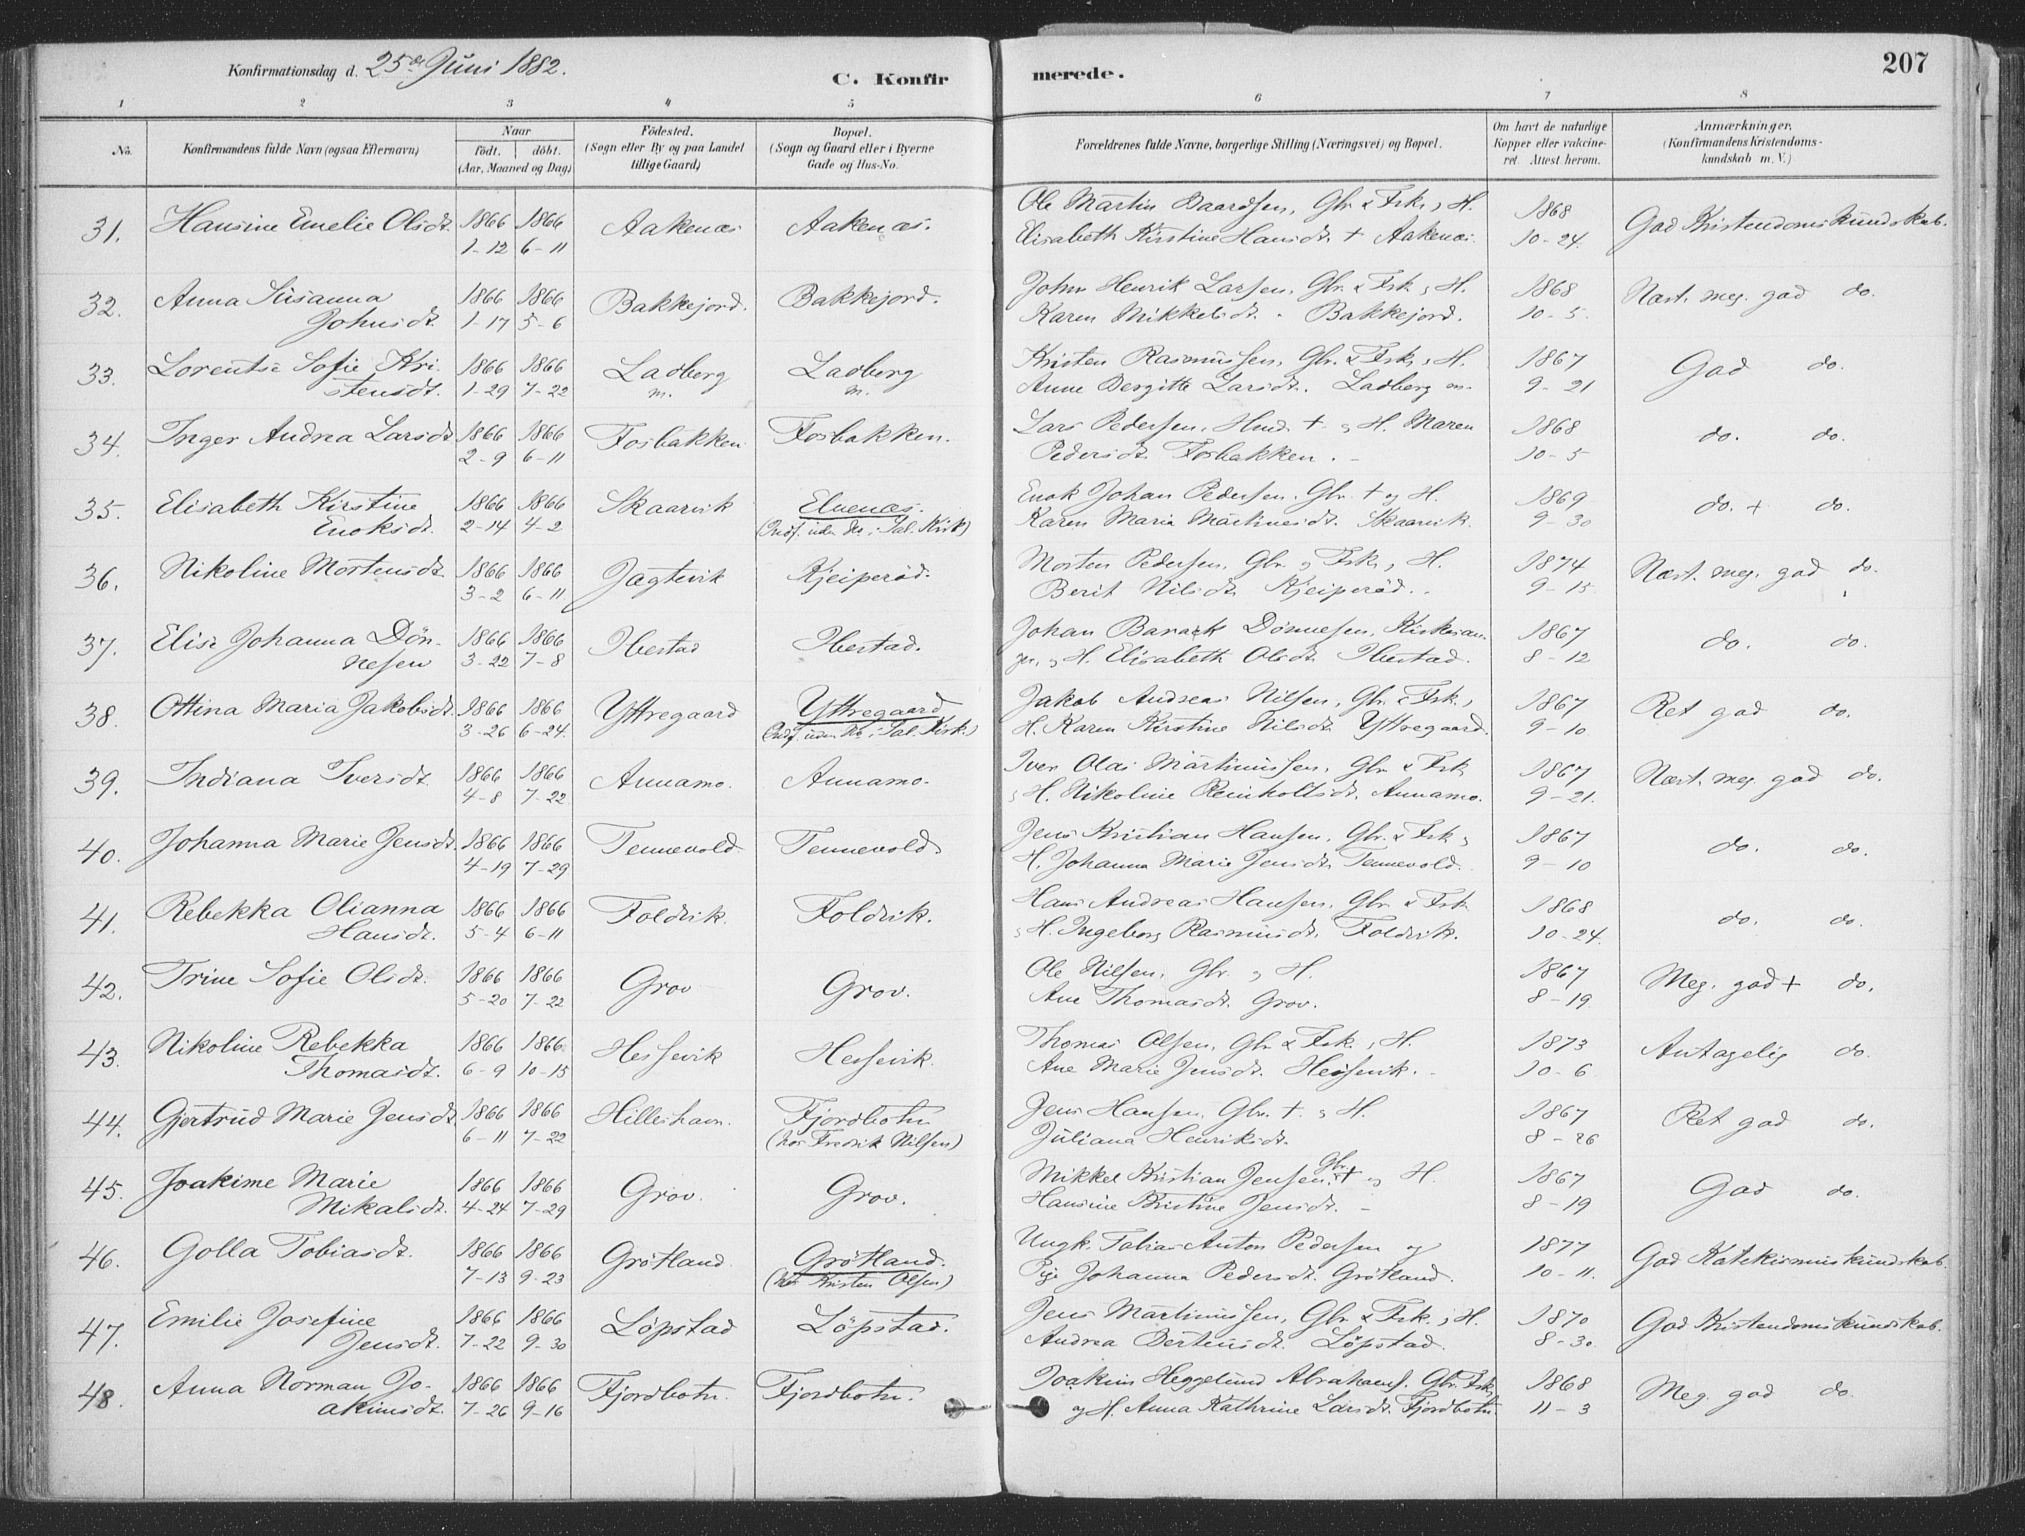 Konfirmationsdag d. 25de Juni 1882.
C. Konfir
merede.
207
1 2 3 4 5 6 7 8
No.
Konfirmandens fulde Navn (ogsaa Efternavn)
Naar
födt. döbt.
(Aar, Maaned og Dag)
Födested.
(Sogn eller By og paa Landet
tillige Gaard)
Bopæl.
(Sogn og Gaard eller i Byerne
Gade og Hus-No.
Forældrenes fulde Navne, borgerlige Stilling (Næringsvei) og Bopæl.
Om havt de naturlige
Kopper eller vakcine-
ret. Attest herom.
Anmærkninger.
(Konfirmandens Kristendoms-
kundskab m. V.)
31. Hansine Emelie Olsdt. 1866 1866 Aakenæs Aakenæs. Ole Martin Baardsen, Gbr. & Fsk., H. 1868 God Kristendomskundskab.
1-12 6-11 Elisabeth Kirstine Hansdt. + Aakenæs. 10-24.
32. Anna Susanna 1866 1866 Bakkejord. Bakkejord. John Henrik Larsen, Gbr. & Fsk., H. 1868 Næst. meg. god do.
Johnsdt. 1-17 5-6 Karen Mikkelsdt. Bakkejord. 10-5.
33. Lorentse Sofie Kri- 1866 1866 Ladberg Ladberg Kristen Rasmussen, Gbr. & Fsk., H. 1867 God do.
stensdt. 1-29 7-22 m. m. Anne Bergitte Larsdt. Ladberg m. 9-21
34. Inger Andrea Larsdt. 1866 1866 Fosbakken Fosbakken. Lars Pedersen, Hmd. + og H. Maren 1868 do. do.
2-9 6-11 Pedersdt. Fosbakken. 10-5
35. Elisabeth Kirstine 1866 1866 Skaarvik Elvenæs. Enok Johan Pedersen, Gbr. + og H. 1869 do. + do.
Enoksdt. 2-14 4-2 Sal. Kirk) Karen Maria Martinusdt. Skaarvik. 9-30
36. Nikoline Mortensdt. 1866 1866 Jagtevik Kjeiperød. Morten Pedersen, Gbr. og Fsk., H. 1874 Næst. meg. god do.
3-2 6-11 Berit Nilsdt. Kjeiperød. 9-15
37. Elise Johanna Dön- 1866 1866 Ibestad Ibestad. Johan Barack Dönnesen, Kirkesan- 1867 do. do.
nesen 3-22 7-8 ger, og H. Elisabeth Olsdt. Ibestad. 8-12
38. Ottina Maria Jakobsdt. 1866 1866 Yttregaard Yttregaard Jakob Andreas Nilsen, Gbr. & Fsk., 1867 Ret god do.
3-26 6-24. Sal. Kirk.) H. Karen Kirstine Nilsdt. Yttregaard. 9-10
39. Indiana Iversdt. 1866 1866 Annamo. Annamo. Iver Olai Martinussen, Gbr. & Fsk 1867 Næst. meg god do.
4-8 7-22. H. Nikoline Reinholtsdt. Annamo. 9-21.
40. Johanna Marie Jensdt. 1866 1866 Tennevold. Tennevold. Jens Kristian Hansen, Gbr. & Fsk., 1867 do. do.
4-19 7-29 H. Johanna Marie Jensdt. Tennevold. 9-10
41. Rebekka Olianna 1866 1866 Foldvik. Foldvik. Hans Andreas Hansen, Gbr. & Fsk 1868 do. do.
Hansdt. 5-4 6-11 H. Ingeborg Rasmusdt. Foldvik. 10-24.
42. Trine Sofie Olsdt. 1866 1866 Grov Grov. Ole Nilsen, Gbr. og H. 1867 Meg. god + do.
5-20 7-22 Ane Thomasdt. Grov. 8-19
43. Nikoline Rebekka 1866 1866 Hessevik Hessevik. Thomas Olsen, Gbr. & Fsk., H. 1873 Antagelig do.
Thomasdt. 6-9 10-15 Ane Marie Jensdt. Hessevik. 10-6
44. Gjertrud Marie Jensdt. 1866 1866 Hilleshavn. Fjordbotn Jens Hansen, Gbr. +. og H. 1867 Ret god do.
6-11 7-22 (hos Fredrik Nilsen) Juliana Henriksdt. 8-26
45. Joakime Marie 1866 1866 Grov. Grov. Mikkel Kristian Jensen, Gbr. + og H. 1867 God do.
Mikalsdt. 4-24 7-29 Hansine Kristine Jensdt. 8-19
46. Golla Tobiasdt. 1866 1866 Grötland. Grötland. Ungk. Tobias Anton Pedersen og 1877 God Katekismuskundskab.
7-13 9-23 (hos Kristen Olsen) Pige Johanna Pedersdt. Grötland. 10-11.
47. Emilie Josefine 1866 1866 Löpstad Löpstad. Jens Martinussen, Gbr. & Fsk., H. 1870 God Kristendomskundskab.
Jensdt. 7-22 9-30 Andrea Berteusdt. Löpstad. 8-30.
48. Anna Norman Jo- 1866 1866 Fjordbotn. Fjordbotn. Joakim Heggelund Abrahams. Gbr. Fsk, 1868 Meg. god do.
akimsdt. 7-26 9-16 og H. Anna Kathrine Larsdt. Fjordbotn. 11-3